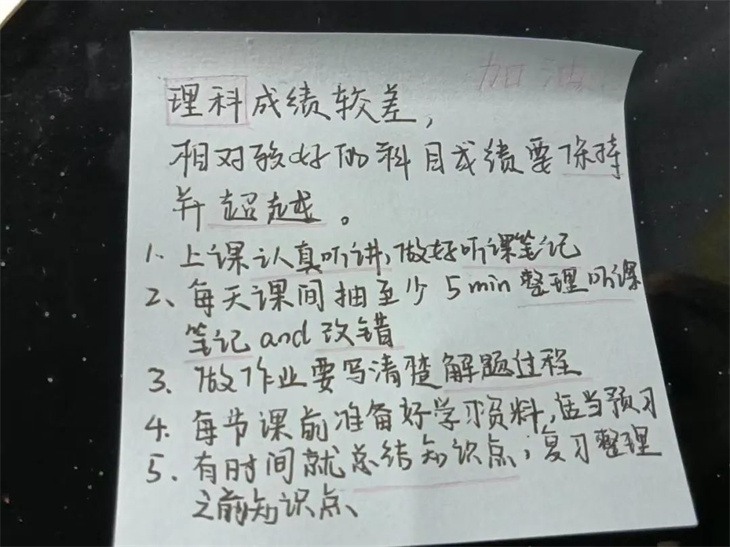 加油
理科成绩较差,
相对较好的科目成绩要保持
并超越。
1、上课认真听讲,做好听课笔记
2、每天课间抽至少5min整理听课
笔记and改错
3、做作业要写清楚解题过程
4、每节课前准备好学习资料,适当预习
5、有时间就总结知识点,复习整理
之前知识点、